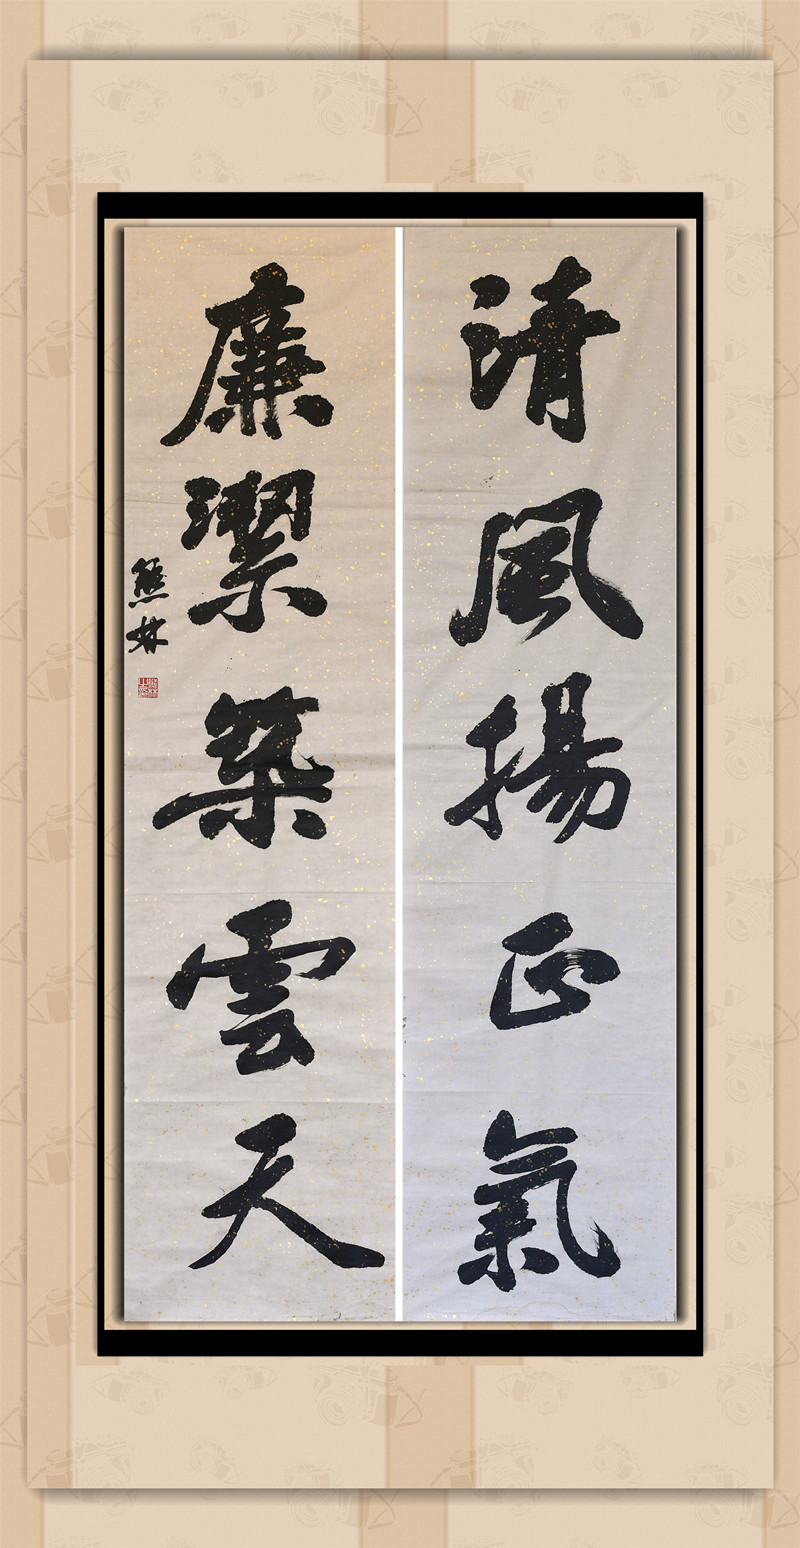 清風揚正氣
廉潔築雲天
熊林